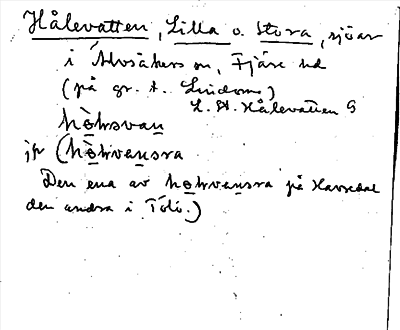 Hålevatten, Lilla o. Stora, sjöar
i Älvsåkers sn, Fjäre hd
(på gr. t. Lindome)
L. St. Hålevatten G
hò̱lvsvaṉ
jfr (hò̱lvaṉsra
Den ena av ho̱lvaṉsra på Havsedal
den andra i Tölö.)